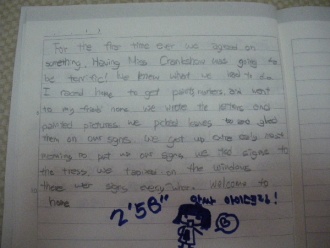 For the first time ever we agreed on
something. Having Miss Crankshaw was going to
be terrific! We knew what we had to do.
I raced home to get paints, and went
to my friends home we wrote the letters and
painted pictures. we picked leaves to and glued
them on our signs. We got up extra early next
morning to put up our signs. we tied signs to
the trees, we taped on the windows
there were signs everywhere. Welcome to
home
2'58"
앗싸 아이스크림!